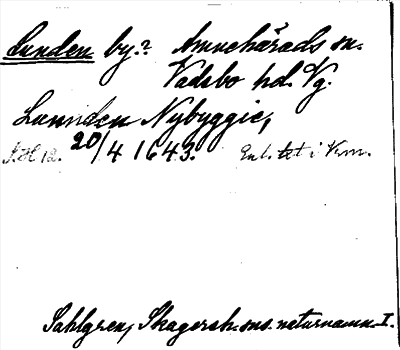 Lunden by.? Amnehärads sn.
Vadsbo hd. Vg.
Lunnden Nybyggie,
20/4 1643. Enl. tet i Krn.
Sahlgren, Skagersh. sns. naturnamn I.